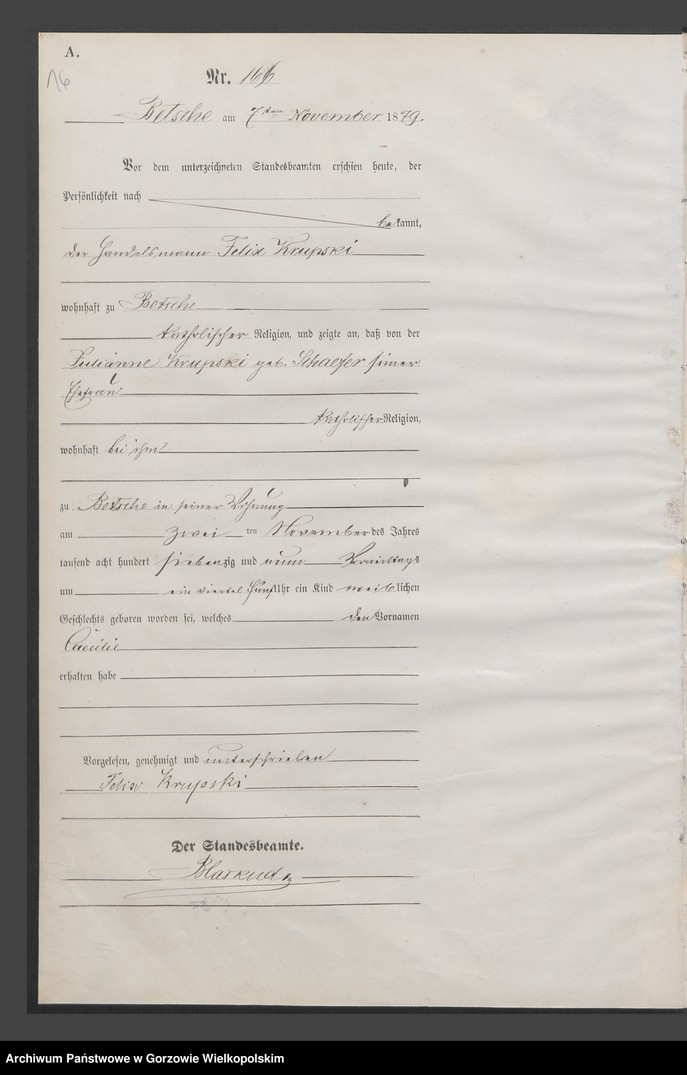 A.
16
Nr. 166
Betsche am 7ten November 1879.
Vor dem unterzeichneten Standesbeamten erschien heute, der
Persönlichkeit nach
bekannt,
der Handelsmann Felix Krupski
wohnhaft zu Betsche
katholischer Religion, und zeigte an, daß von der
Julianne Krupski geb. Schaefer seiner
Ehefrau
katholischer Religion,
wohnhaft bei ihm
zu Betsche in seiner Wohnung
am zwei ten November des Jahres
tausend acht hundert siebenzig und neun Vormittags
um ein viertel fünf Uhr ein Kind weiblichen
Geschlechts geboren worden sei, welches den Vornamen
Caecilie
erhalten habe
Vorgelesen, genehmigt und unterschrieben
Felix Krupski
Der Standesbeamte.
Archiwum Państwowe w Gorzowie Wielkopolskim